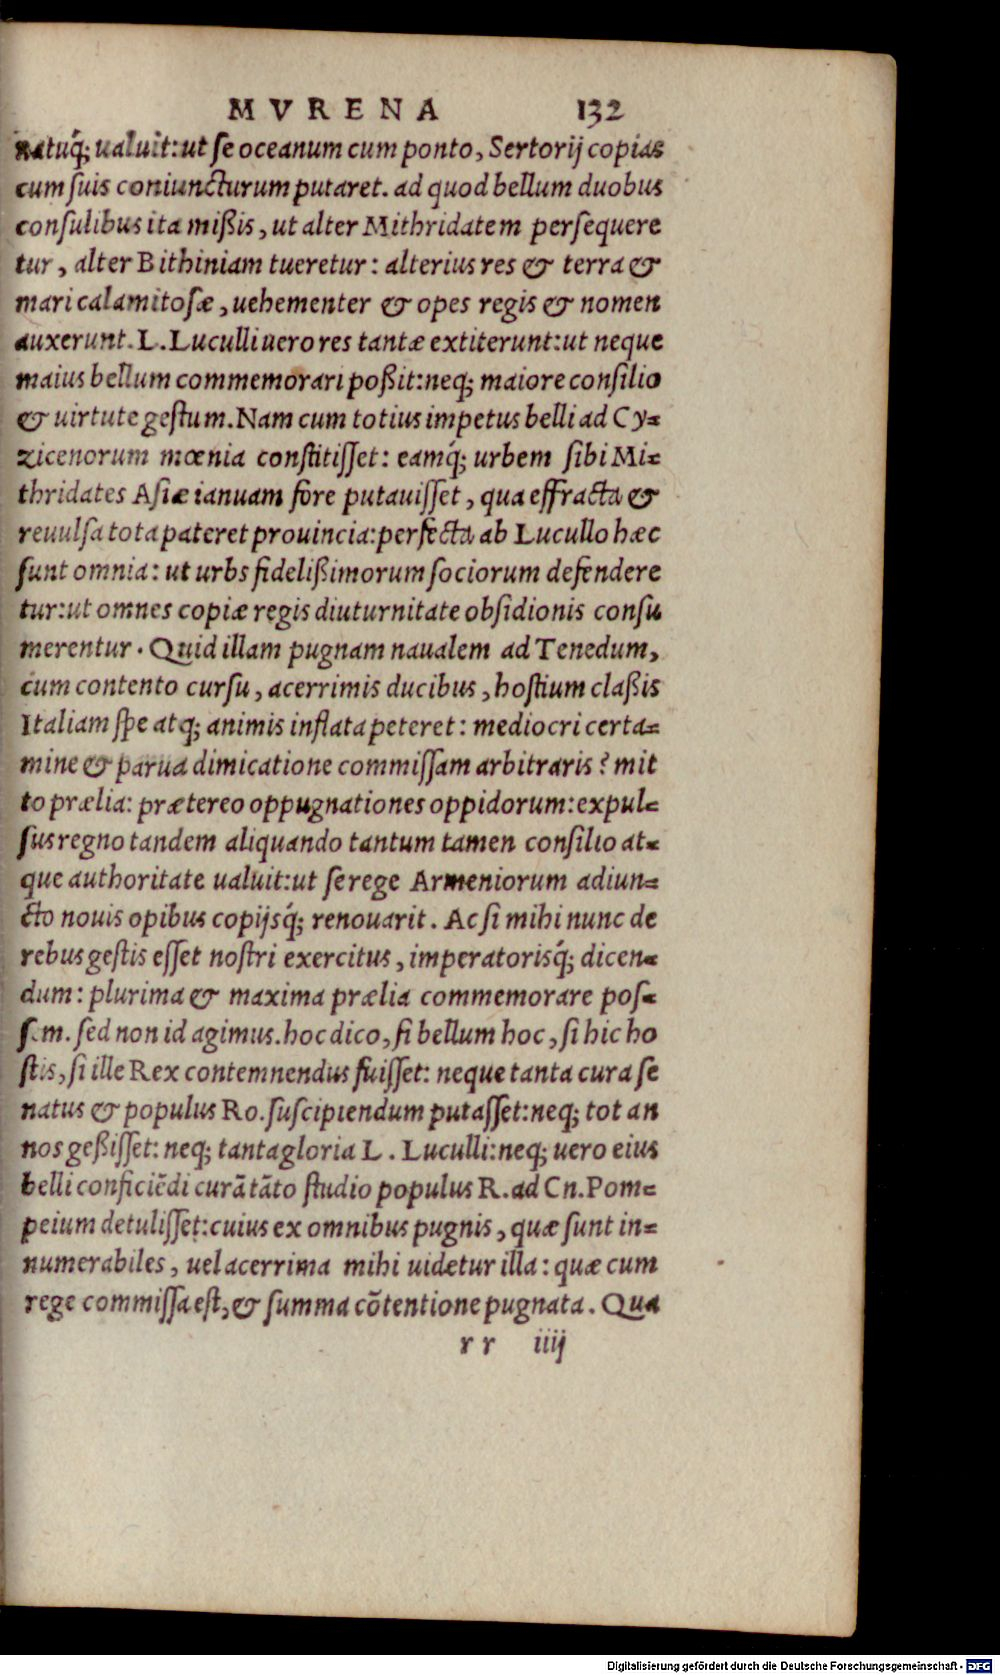 MVRENA 132
natuq́; ualuit: ut ſe oceanum cum ponto, Sertorij copias
cum ſuis coniuncturum putaret. ad quod bellum duobus
conſulibus ita mißis, ut alter Mithridatem perſequere
tur, alter Bithiniam tueretur: alterius res & terra &
mari calamitoſæ, uehementer & opes regis & nomen
auxerunt. L. Luculli uero res tantæ extiterunt: ut neque
maius bellum commemorari poßit: neq; maiore conſilio
& uirtute geſtum. Nam cum totius impetus belli ad Cy-
zicenorum mœnia conſtitiſſet: eamq́; urbem ſibi Mi-
thridates Aſiæ ianuam fore putauiſſet, qua effracta &
reuulſa tota pateret prouincia: perfecta ab Lucullo hæc
ſunt omnia: ut urbs fidelißimorum ſociorum defendere
tur: ut omnes copiæ regis diuturnitate obſidionis conſu
merentur. Quid illam pugnam naualem ad Tenedum,
cum contento curſu, acerrimis ducibus, hoſtium claßis
Italiam ſpe atq; animis inflata peteret: mediocri certa-
mine & parua dimicatione commiſſam arbitraris? mit
to prælia: prætereo oppugnationes oppidorum: expul-
ſus regno tandem aliquando tantum tamen conſilio at-
que authoritate ualuit: ut ſe rege Armeniorum adiun-
cto nouis opibus copijsq́; renouarit. Ac ſi mihi nunc de
rebus geſtis eſſet noſtri exercitus, imperatorisq́; dicen-
dum: plurima & maxima prælia commemorare poſ-
ſem. ſed non id agimus. hoc dico, ſi bellum hoc, ſi hic ho
ſtis, ſi ille Rex contemnendus fuiſſet: neque tanta cura ſe
natus & populus Ro. ſuſcipiendum putaſſet: neq; tot an
nos geßiſſet: neq; tanta gloria L. Luculli: neq; uero eius
belli conficiẽdi curã tãto ſtudio populus R. ad Cn. Pom-
peium detuliſſet: cuius ex omnibus pugnis, quæ ſunt in-
numerabiles, uel acerrima mihi uidetur illa: quæ cum
rege commiſſa eſt, & ſumma cõtentione pugnata. Qua
rr iiij
Digitalisierung gefördert durch die Deutsche Forschungsgemeinschaft - DFG